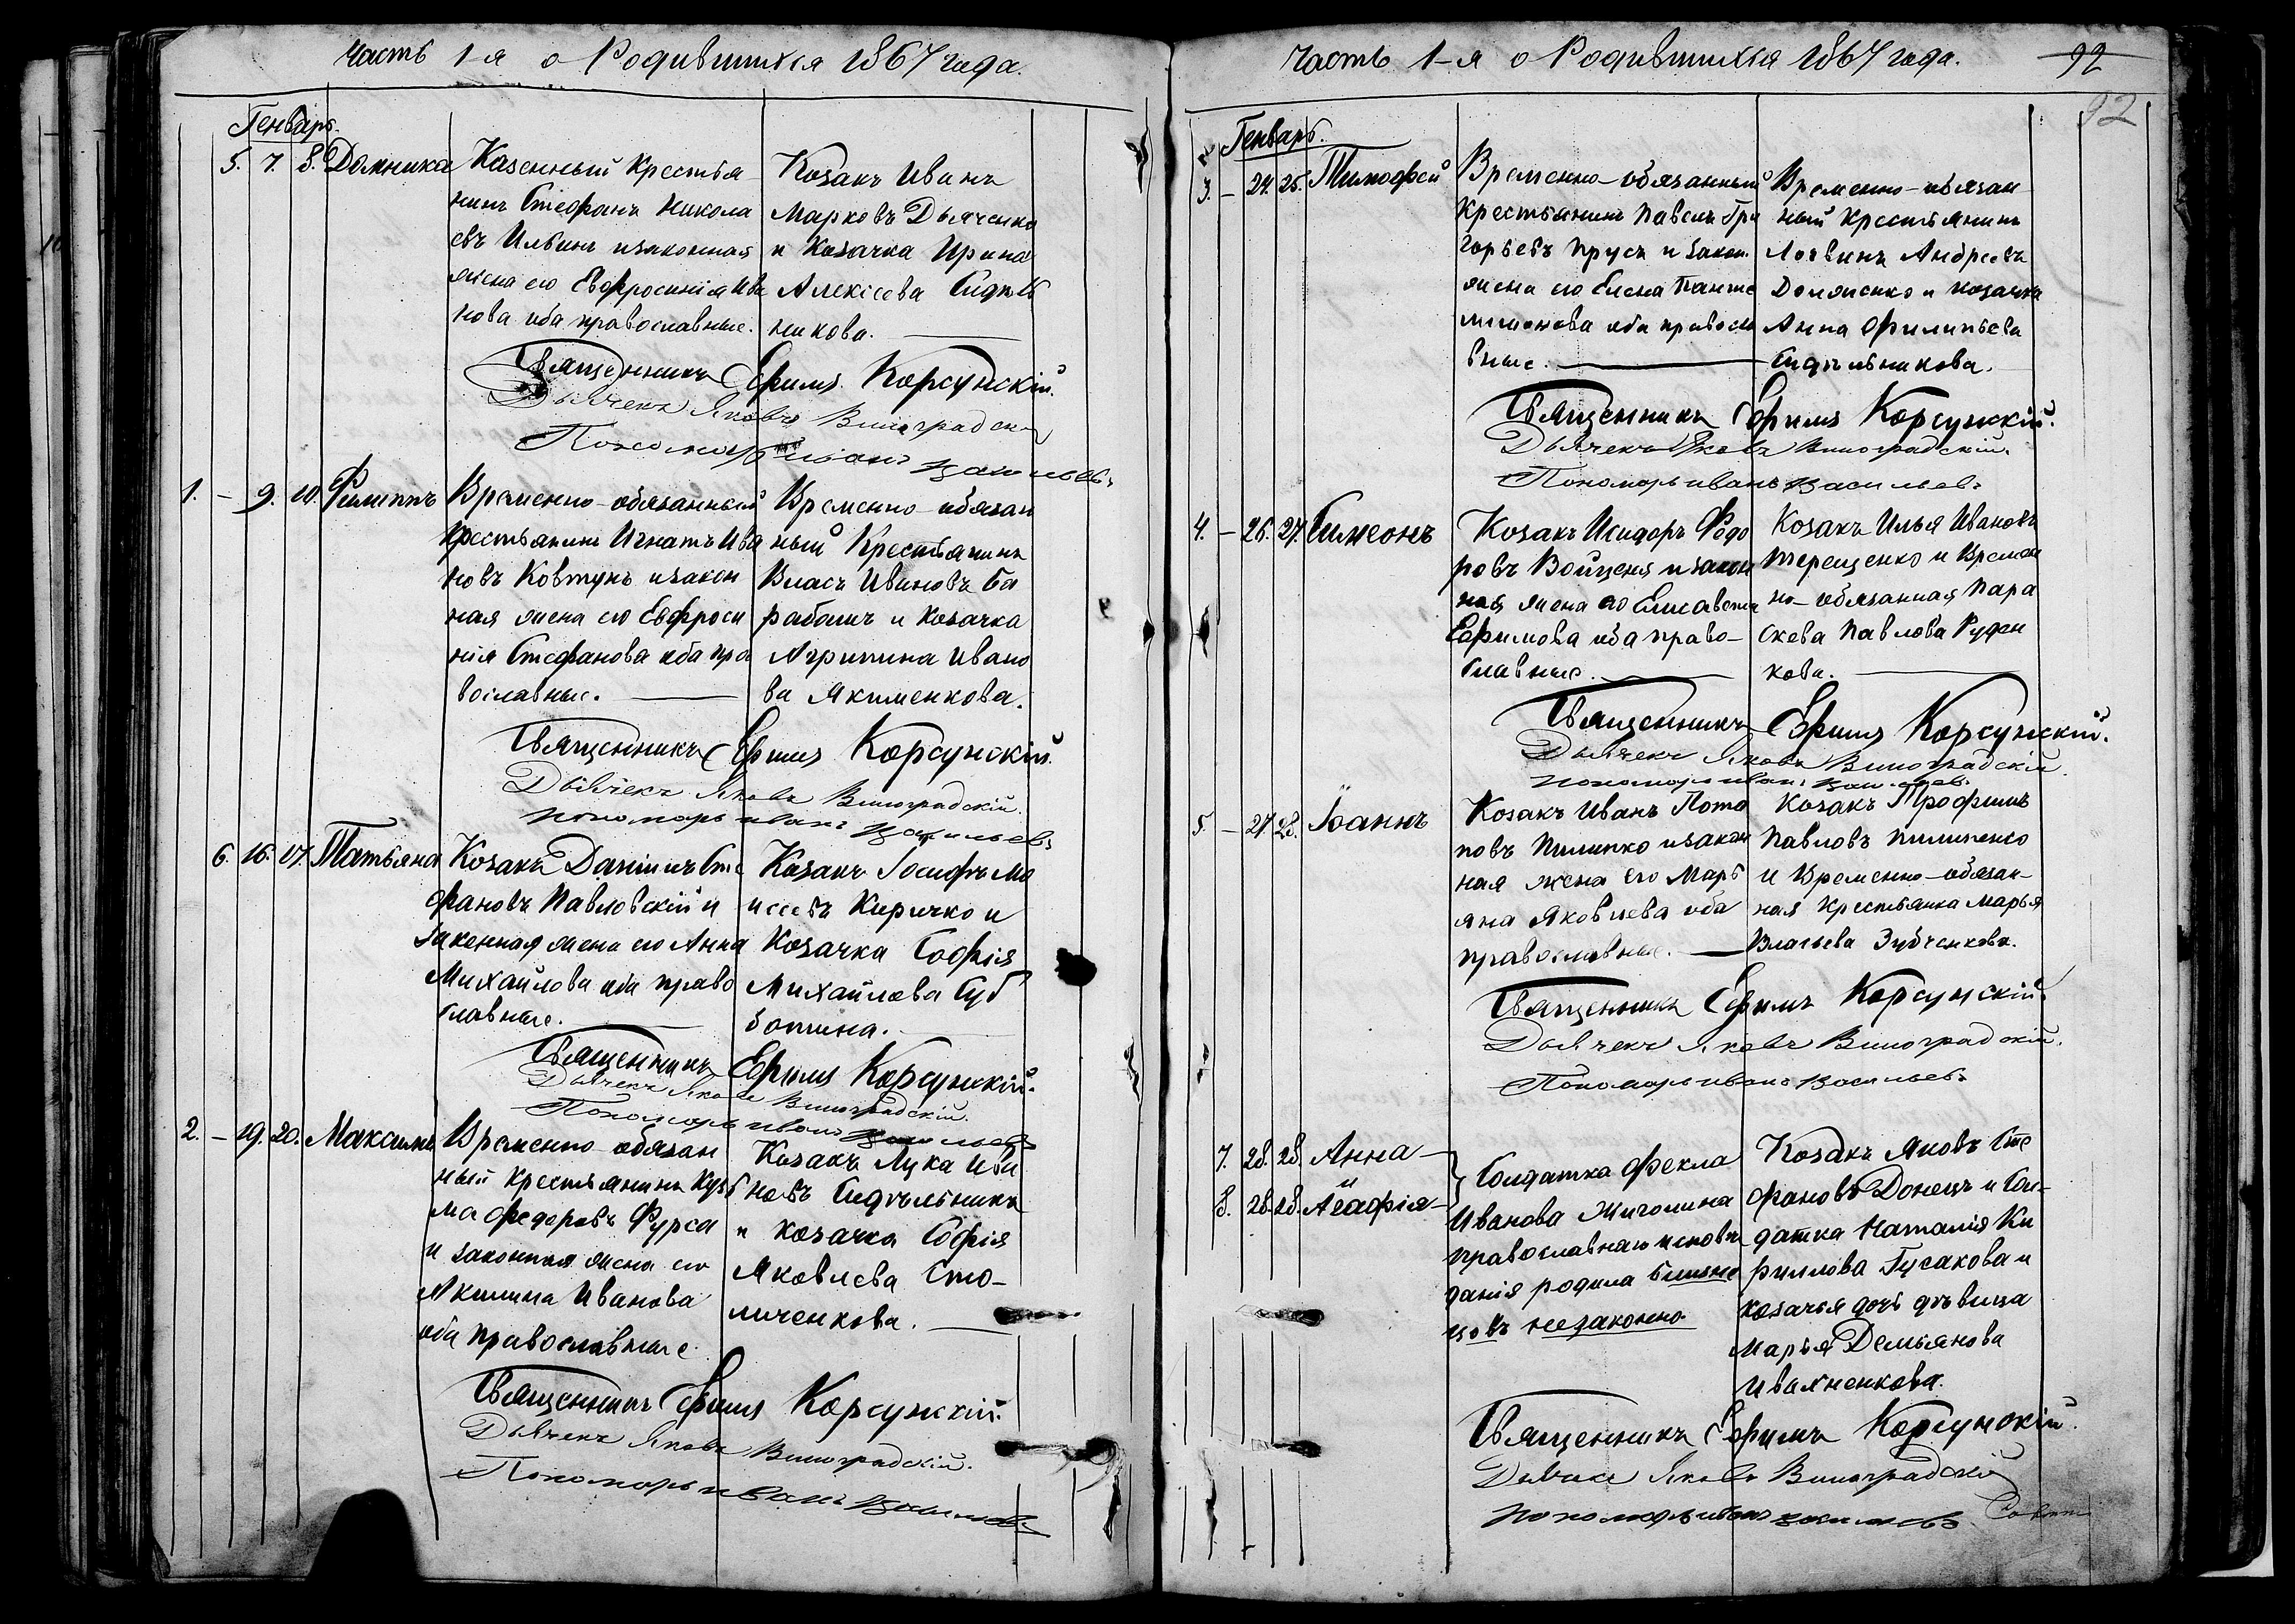 Часть 1-я о Родившихся 1867 года.
Генварь.
5. 7. 8. Домника
Казенный крестья
нинъ Стефанъ Никола
евъ Ильинъ и законная
жена его Евфросинія Ива
нова оба православные.
Козакъ Иванъ
Марковъ Дьяченко
и Козачка Ирина
Алексіева Сидѣль
никова.
Священникъ Ефимъ Корсунскій.
Дьячекъ Яковъ Виноградскій
Пономарь Иванъ Васильевъ
1. – 9. 10. Филиппъ
Временно-обязанный
Крестьянинъ Игнатъ Ива
новъ Ковтунъ и закон
ная жена его Евфроси
нія Стефанова оба пра
вославные.
Временно-обязан
ный Крестьянинъ
Власъ Ивановъ Ба
рабашъ и Козачка
Агрипина Ивано
ва Якименкова.
Священникъ Ефимъ Корсунскій.
Дьячекъ Яковъ Виноградскій.
Пономарь Иванъ Васильевъ
6. 16. 17. Татьяна
Козакъ Даніилъ Сте
фановъ Павловскій и
законная жена его Анна
Михайлова оба право
славные.
Козакъ Іосифъ Мо
исеевъ Киричко и
Козачка Софія
Михайлова Суб
ботина.
Священникъ Ефимъ Корсунскій.
Дьячекъ Яковъ Виноградскій.
Пономарь Иванъ Васильевъ
2. – 19. 20. Максимъ
Временно-обязан
ный крестьянинъ Кузь
ма Федоровъ Фурса
и законная жена его
Акилина Иванова
оба православные
Козакъ Лука Ива
новъ Сидѣльникъ
и козачка Софія
Яковлева Сто-
личенкова.
Священникъ Ефимъ Корсунскій.
Дьячекъ Яковъ Виноградскій.
Пономарь Иванъ Васильевъ
Часть 1-я о Родившихся 1867 года.
92
92
Генварь.
3. – 24. 25. Тимофей
Временно-обязанный
Крестьянинъ Павелъ Гри
горьевъ Прусъ и закон.
жена его Елена Панте
лимонова оба правосла
вные.
Временно-обязан
ный крестьянинъ
Логвинъ Андреевъ
Доложенко и козачка
Анна Филипьева
Сидѣльникова.
Священникъ Ефимъ Корсунскій.
Дьячекъ Яковъ Виноградскій.
Пономарь Иванъ Васильевъ
4. – 26. 27. Симеонъ
Козакъ Исидоръ Федо
ровъ Войценя и закон
ная жена его Елисавета
Ефимова оба право-
славные.
Козакъ Илья Ивановъ
Терещенко и Времен
но-обязанная Пара
скева Павлова Руден
кова.
Священникъ Ефимъ Корсунскій.
Дьячекъ Яковъ Виноградскій
Пономарь Иванъ Васильевъ
5. – 27. 28. Іоаннъ
Козакъ Иванъ Пота
повъ Пилипко и закон
ная жена его Марь
яна Яковлева оба
православные.
Козакъ Трофимъ
Павловъ Пилипенко
и Временно-обязан-
ная крестьянка Марья
Власьева Зубченкова.
Священникъ Ефимъ Корсунскій.
Дьячекъ Яковъ Виноградскій.
Пономарь Иванъ Васильевъ
7. 28. 28. Анна
и
8. 28. 28. Агафія
Солдатка Фекла
Иванова Жиголина
православнаго исповѣ
данія родила близне
цовъ незаконно.
Козакъ Яковъ Сте
фановъ Донецъ и Сол-
датка Наталія Ки
риллова Гусакова и
козачья дочь дѣвица
Марья Демьянова
Ивахненкова.
Священникъ Ефимъ Корсунскій.
Дьячекъ Яковъ Виноградскій
Пономарь Иванъ Васильевъ